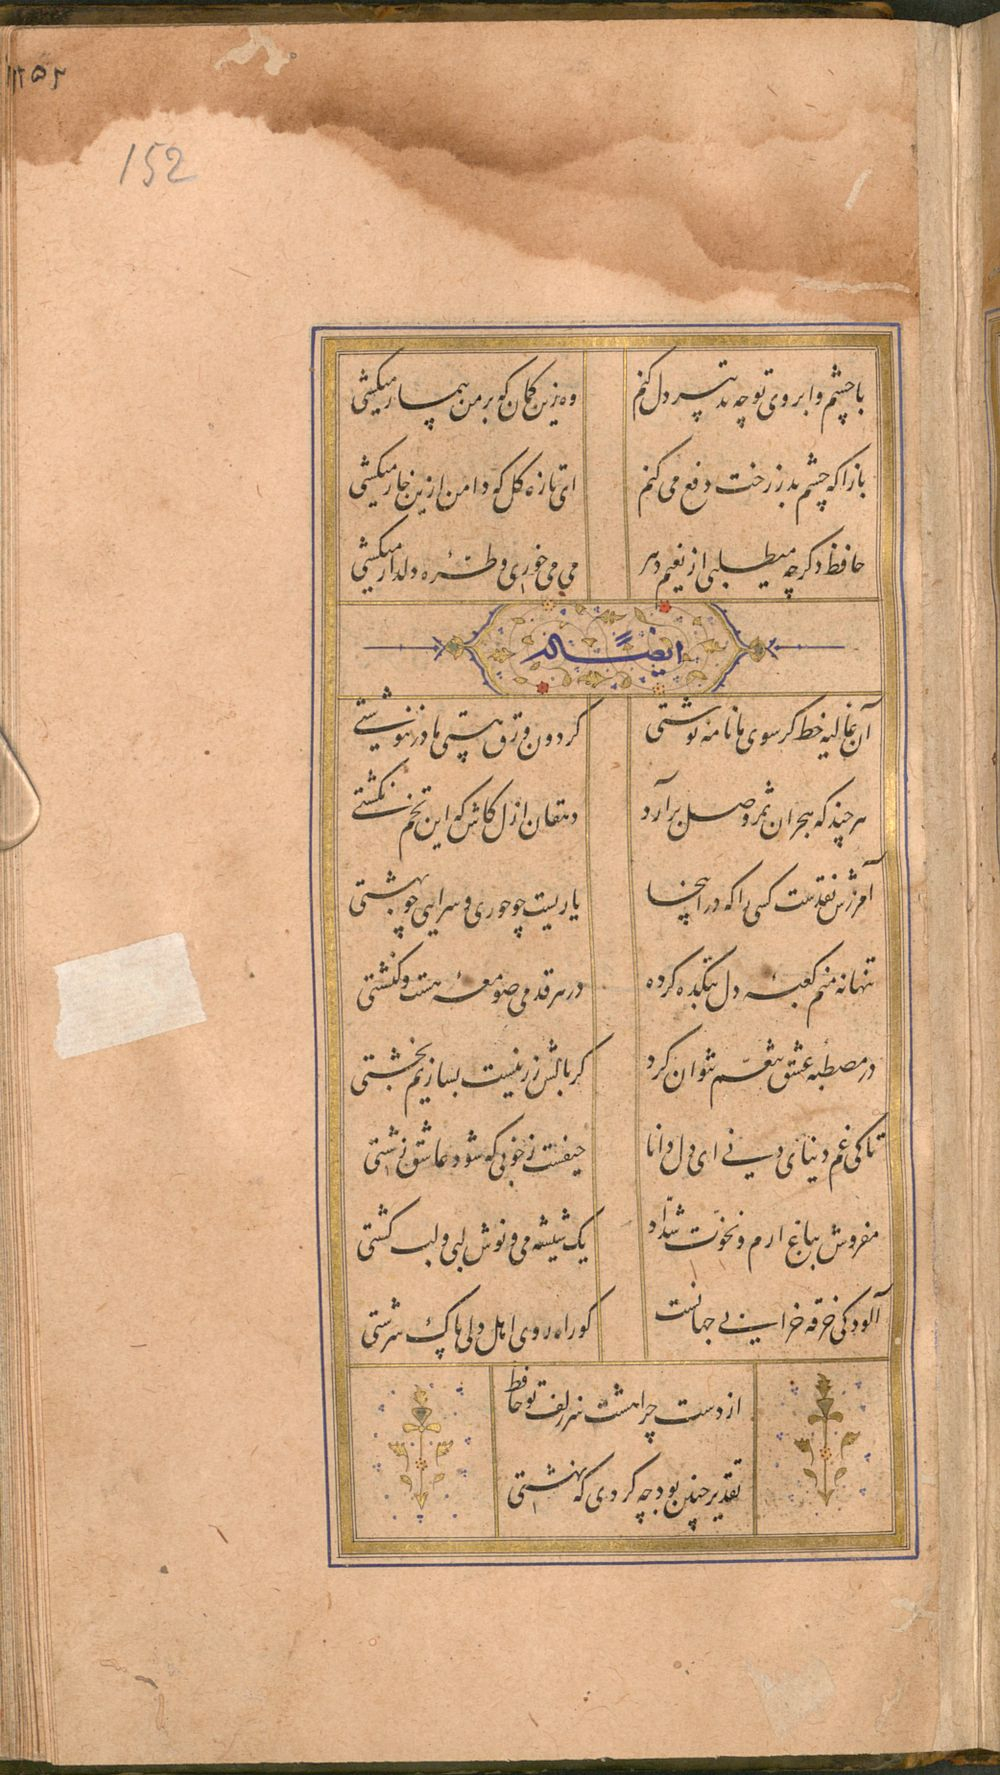 ۱۵۲
152
با چشم و ابروی تو چه تدبیر دل کنم
وه زین کمان که بر من بیمار میکشی
بازآ که چشم بد ز رخت دفع می کنم
ای تازه گل که دامن ازین خار میکشی
حافظ دگر چه میطلبی از نعیم دهر
می می خوری و طره دلدار میکشی
ایضاً له
آن غالیه خط گر سوی ما نامه نوشتی
گردون ورق هستی ما در ننوشتی
هر چند که هجران ثمر وصل برآرد
دهقان ازل کاش که این تخم نکشتی
آمرزش نقدست کسی را که در اینجا
یاریست چو حوری و سرایی چو بهشتی
تنها نه منم کعبه دل بتکده کرده
در هر قدمی صومعه هست و کنشتی
در مصطبه عشق تنعم نتوان کرد
گر بالش زر نیست بسازیم بخشتی
تا کی غم دنیای دنی ای دل دانا
حیفست ز خوبی که شود عاشق زشتی
مفروش بباغ ارم و نخوت شداد
یک شیشه می و نوش لبی و لب کشتی
آلودگی خرقه خرابی جهانست
کو راه روی اهل دلی پاک سرشتی
از دست چرا هشت سر زلف تو حافظ
تقدیر چنین بود چه کردی که نهشتی